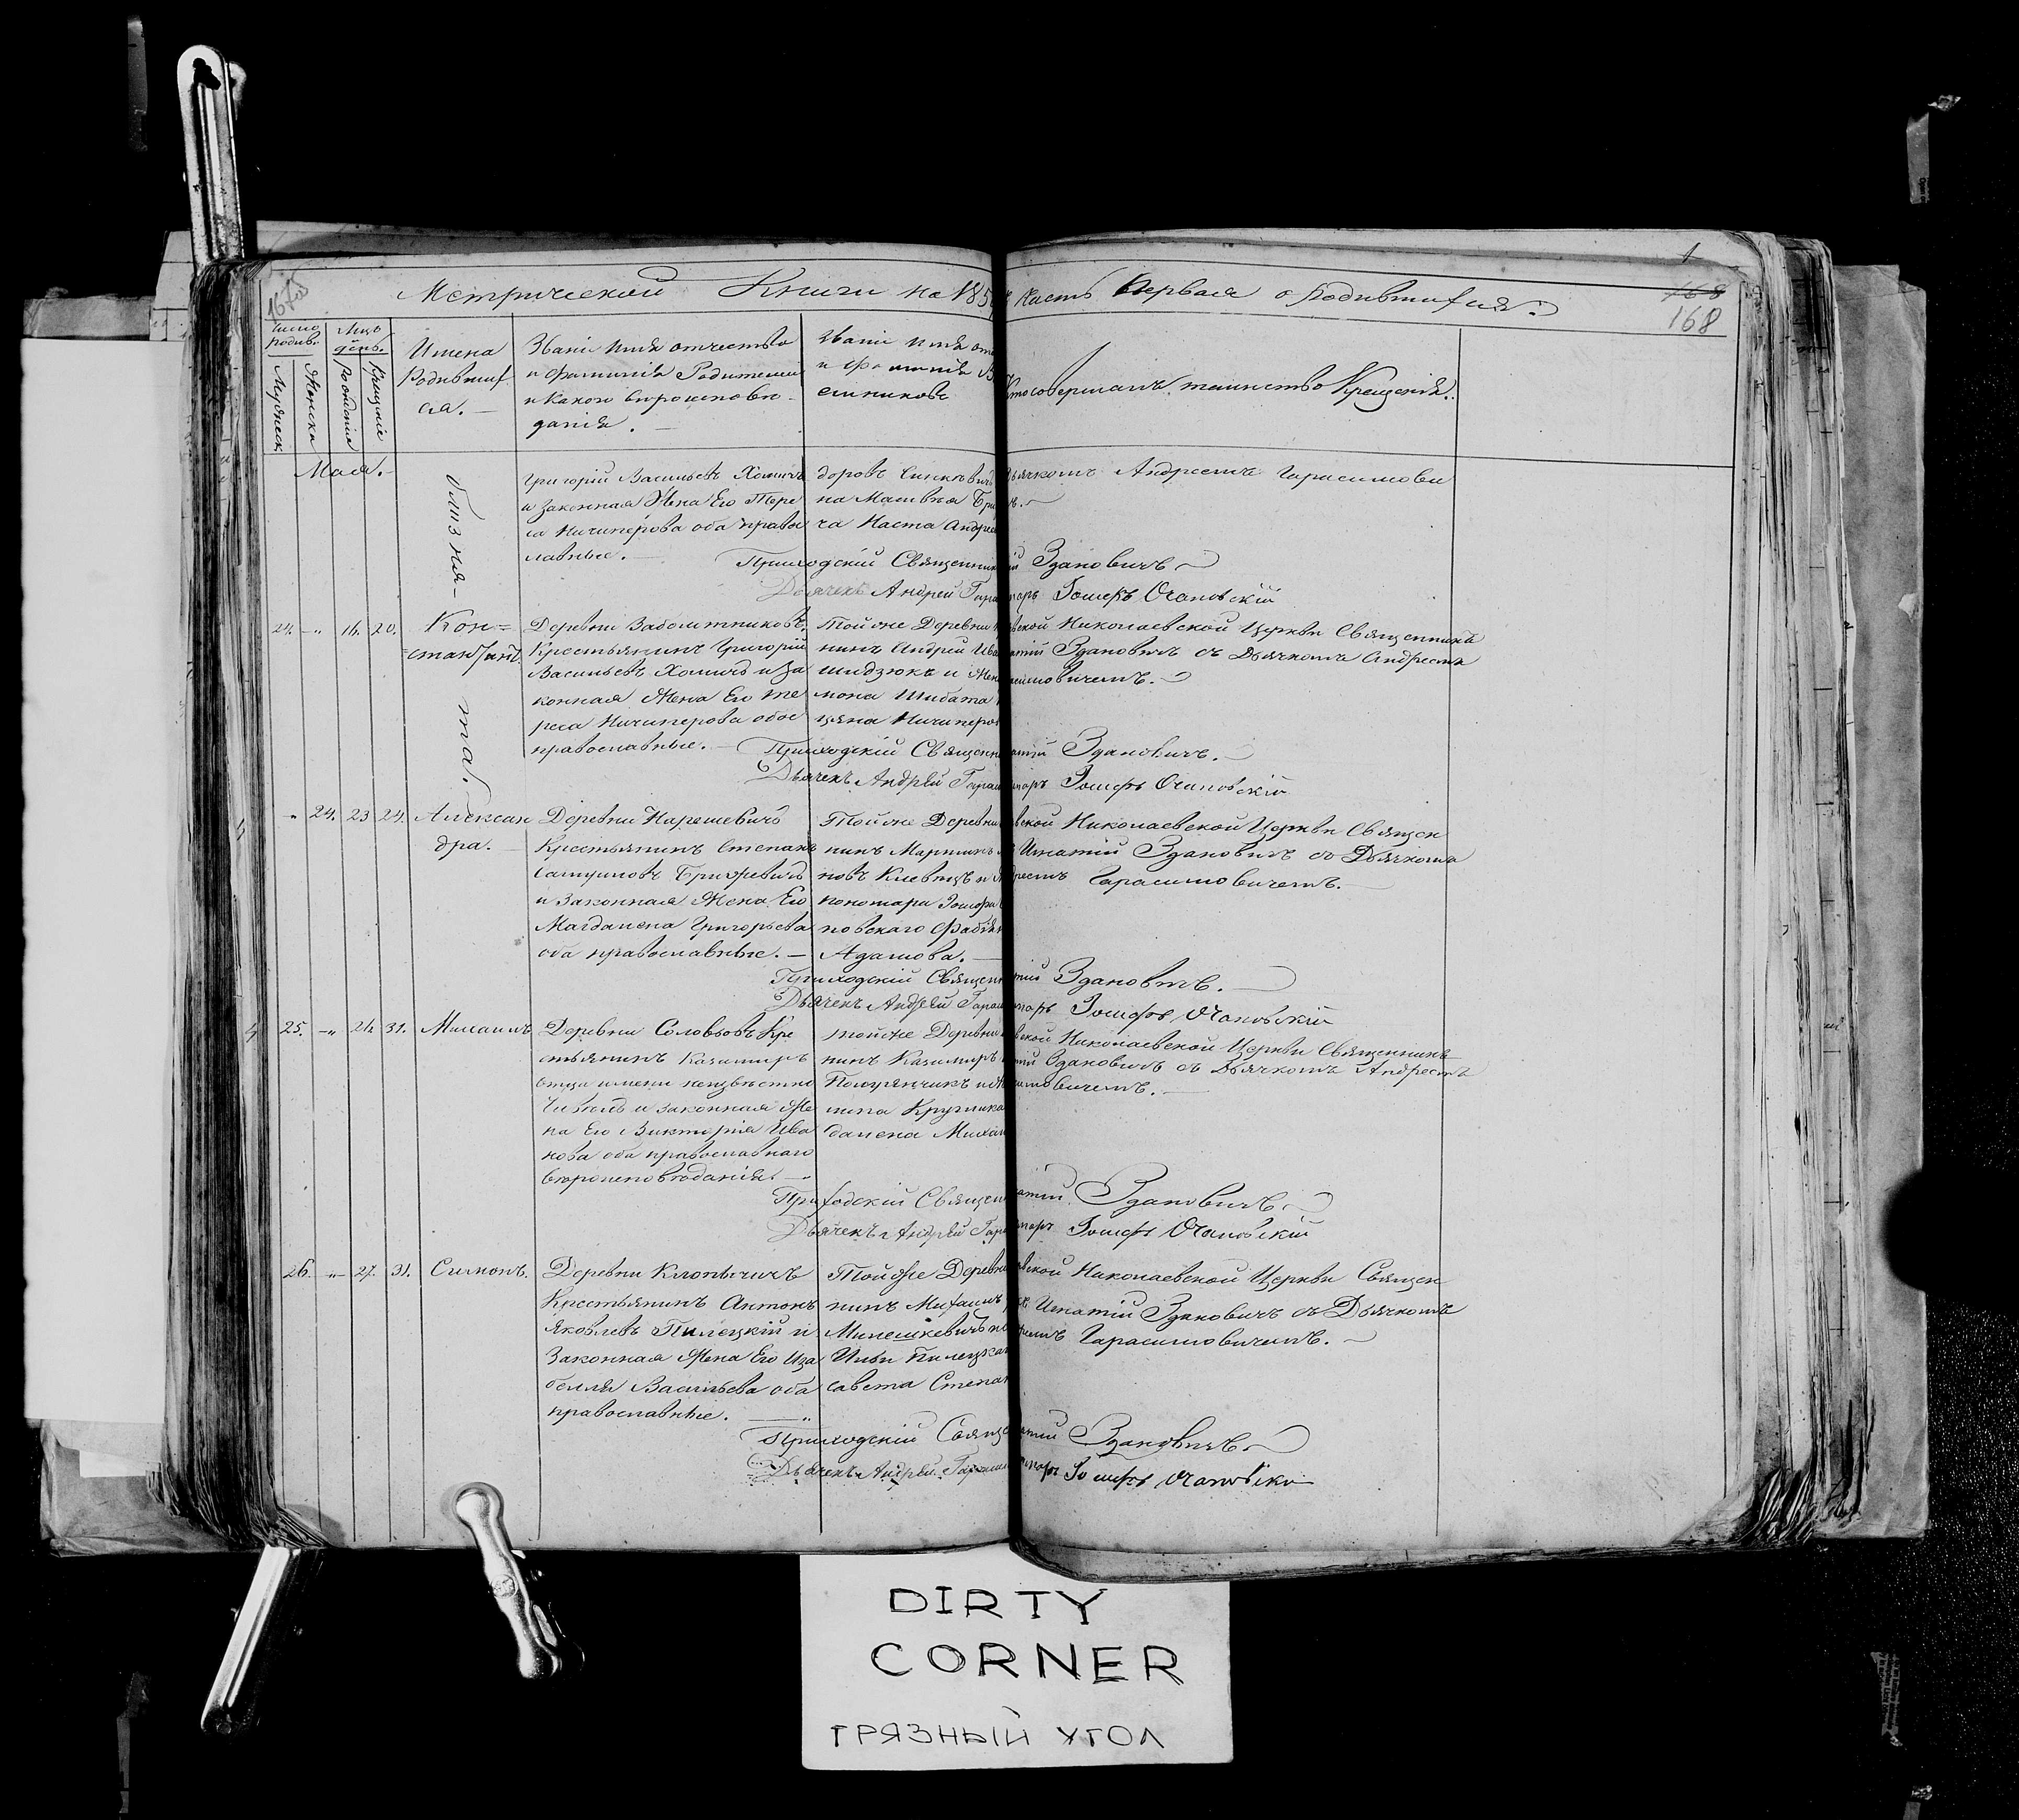 167об
168
168
Метрической Книги на 185 Часть Первая о Родившихся.
Число родив.
Мужеска
Женска
Мцъ день.
Рожденія
Крещенія
Имена
Родивших
ся.
Званіе Имя отчество
и Фамилія Родителей
и какого вѣроисповѣ-
данія.
Званіе Имя от
и Фамилія В
емниковъ
Кто совершалъ таинство Крещенія.
Мая.
близня-
та.
Григорій Васильевъ Хомичъ
и Законная Жена Его Тере
са Ничипёрова оба право
славные.
доровъ
на Матвѣя
ча Наста Андре
Дьячкомъ Андреемъ Гарасимови
Приходскій Священник й Здановичъ
Дьячекъ Андрей Гара маръ Іосифъ Очаповскій
24. - " 16. 20. Кон=
=стантинъ.
Деревни Заболотниковъ
Крестьянинъ Григорій
Васильевъ Хомичъ и За
конная Жена Его Те
реса Ничиперова обое
православные.
Той же Деревни
нинъ Андрей Ива
и Жен
мона Шибата
Ничиперо
вской Николаевской Церкви Священникъ
атій Здановичъ съ Дьячкомъ Андреемъ
симовичемъ.
Приходскій Священн атій Здановичъ.
Дьячекъ Андрей Гараси маръ Іосифъ Очаповскій
" 24. 23 24. Алексан
дра.
Деревни Нарешевичъ
Крестьянинъ Степанъ
Самуиловъ
и Законная Жена Его
Магдалена Григорьева
оба православные.
Той же Деревни
нинъ Мартинъ
новъ и
пономаря Іосифа
повскаго Фабія
Адамова.
вской Николаевской Церкви Священ
Игнатій Здановичъ съ Дьячкомъ
дреемъ Гарасимовичемъ.
Приходскій Священ тій Здановичъ.
Дьячекъ Андрей Гараси маръ Іосифъ Очаповскій
25. - " 26. 31. Михаилъ
Деревни Соловьовъ Кре
стьянинъ Казимиръ
отца имени неизвѣстно
и законная Же
на Его Викторія Ива
нова оба православнаго
вѣроисповѣданія.
той же Деревни
нинъ Казимиръ
Полуянчикъ и
Круглика
далена Михаи
вской Николаевской Церкви Священникъ
тій Здановичъ съ Дьячкомъ Андреемъ
симовичемъ.
Приходскій Священ атій Здановичъ
Дьячекъ Андрей Гара маръ Іосифъ Очаповскій
26. - " 27. 31. Симонъ.
Деревни Клопычичъ
Крестьянинъ Антонъ
Яковлевъ Пилецкій и
Законная Жена Его Иза
белля Васильева оба
православные.
Той же Деревни
нинъ Михаилъ
Милешкевичъ
Ильи Пилецка
савета Степан
вской Николаевской Церкви Священ
Игнатій Здановичъ съ Дьячкомъ
дреемъ Гарасимовичемъ.
Приходскій Свящ атій Здановичъ
Дьячекъ Андрей Гараси маръ Іосифъ Очаповскій
DIRTY
CORNER
ГРЯЗНЫЙ УГОЛ